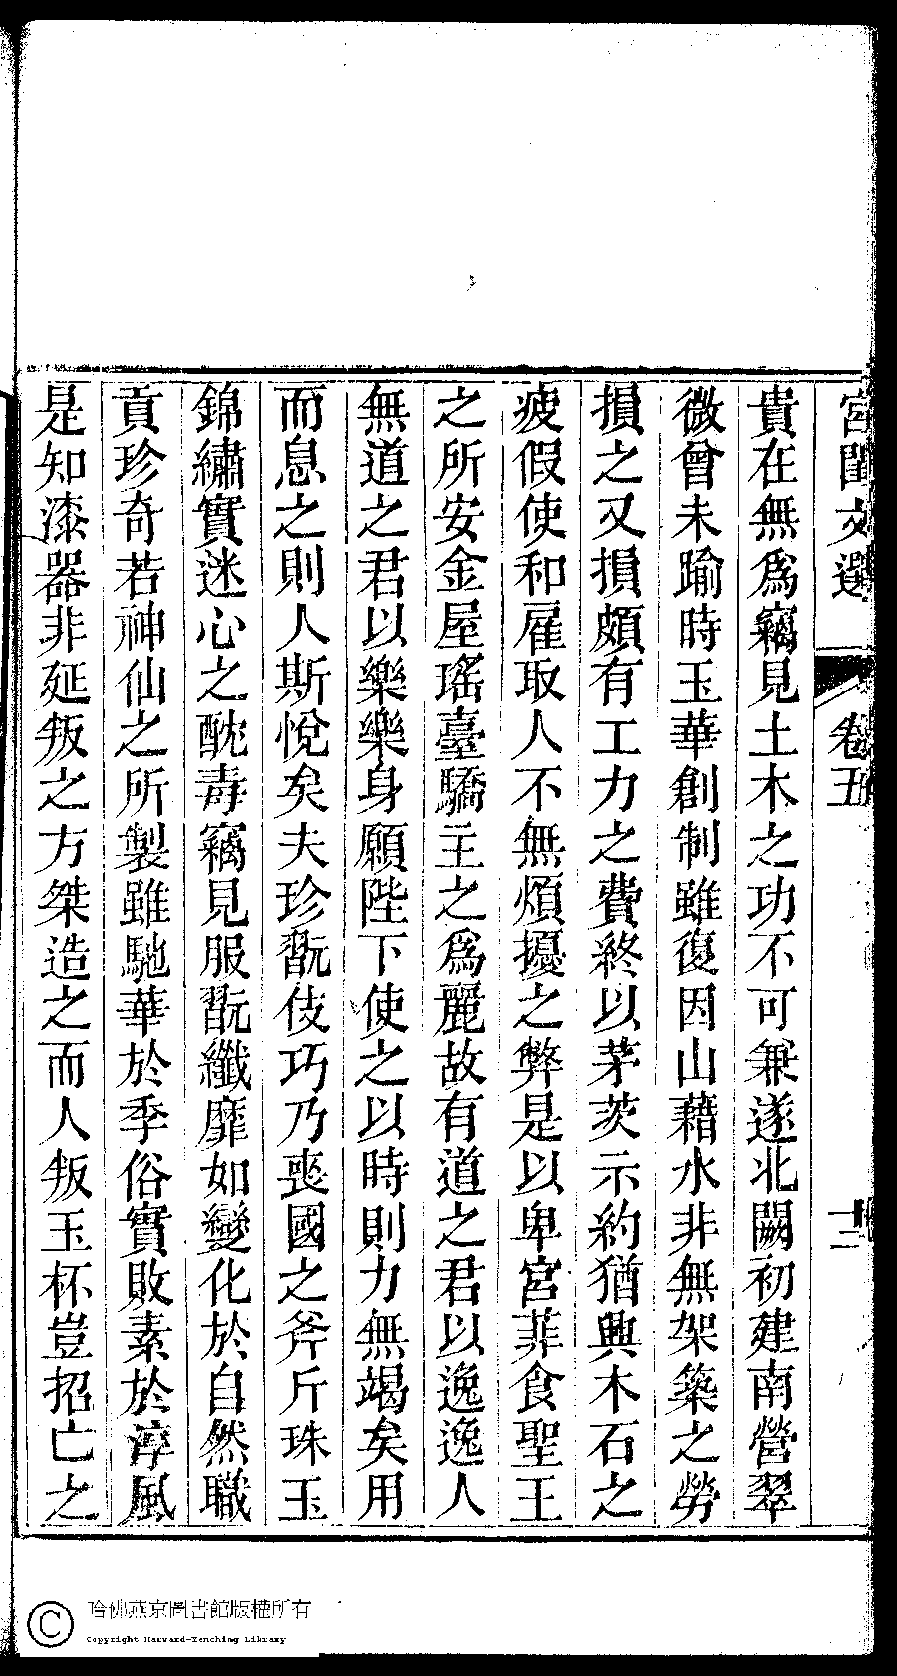 宮閨文選 卷五 十二
貴在無爲竊見土木之功不可兼遂北闕初建南營翠
微曾未踰時玉華創制雖復因山藉水非無架築之勞
損之又損頗有工力之費終以茅茨示約猶興木石之
疲假使和雇取人不無煩擾之弊是以卑宮菲食聖王
之所安金屋瑤臺驕主之爲麗故有道之君以逸逸人
無道之君以樂樂身願陛下使之以時則力無竭矣用
而息之則人斯悅矣夫珍翫伎巧乃喪國之斧斤珠玉
錦繡實迷心之酖毒竊見服翫纖靡如變化於自然職
貢珍奇若神仙之所製雖馳華於季俗實敗素於淳風
是知漆器非延叛之方桀造之而人叛玉杯豈招亡之
哈佛燕京圖書館版權所有
Copyright Harvard-Yenching Library